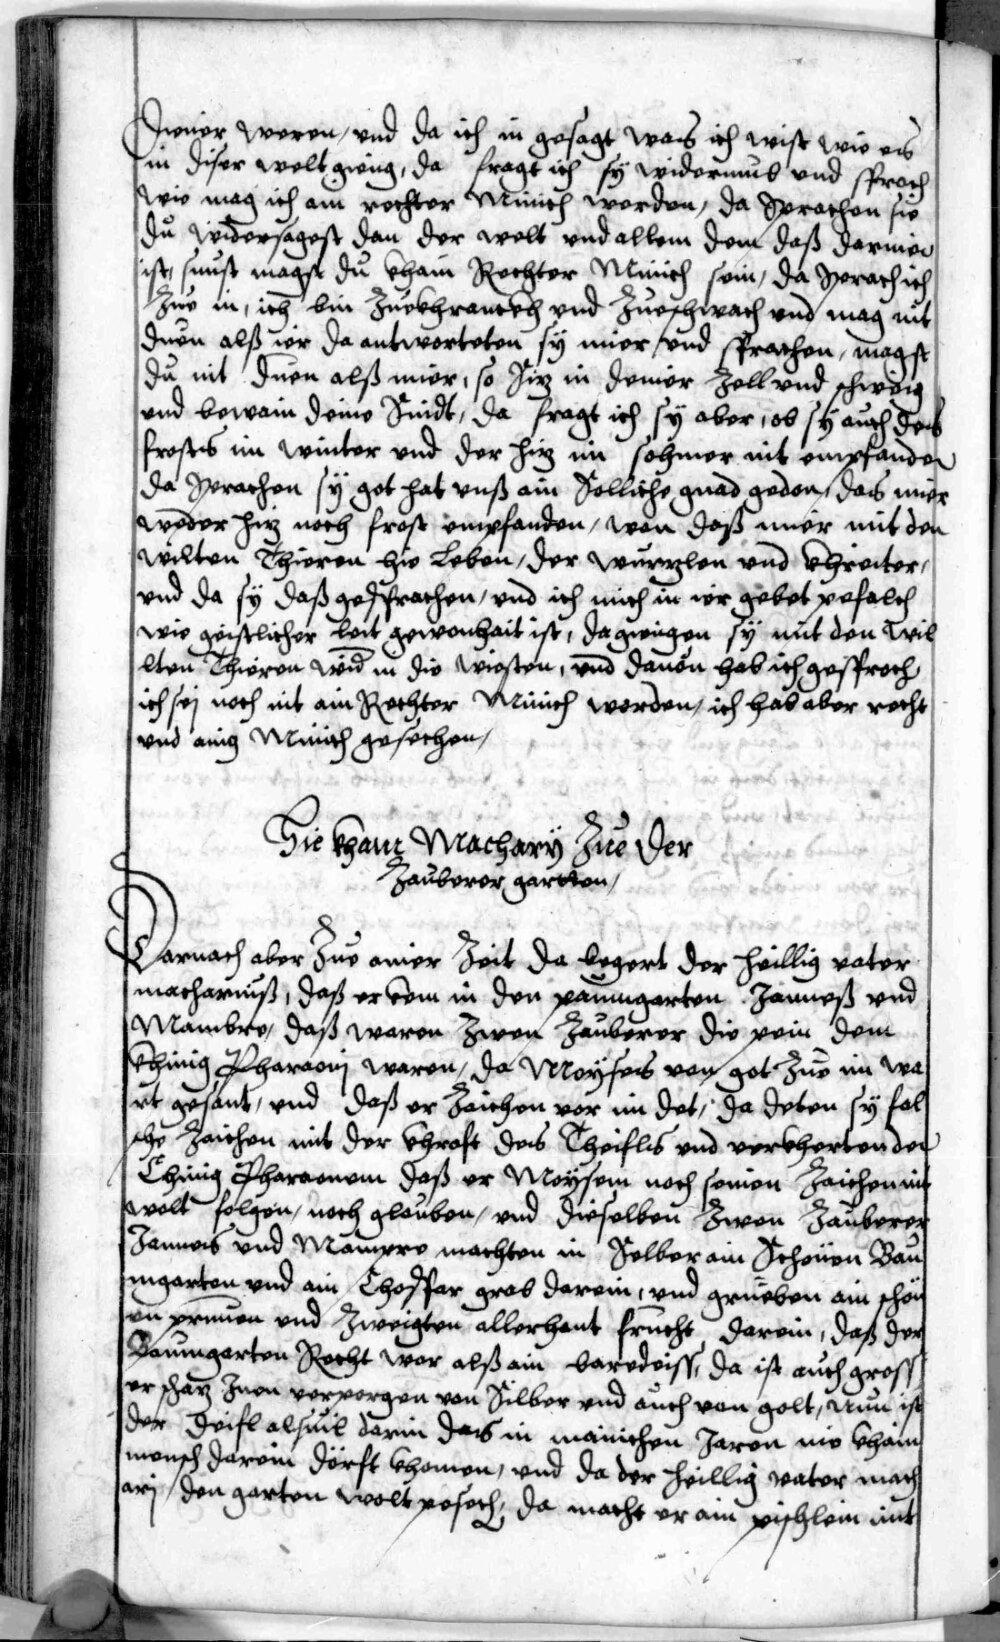 Jnner weren, vnd da ich in gesagt was ich wist wie es
in diser welt gieng, da fragt ich sy widerumb vnd sprach
wie mag ich ain rechter Münich werden, da sprachen sie
du widersagest dan der welt vnd allem dem daß darinen
ist, sunst magst du khain Rechter Münich sein, da sprach ich
Zue in, ich bin Zuekhranckh vnd Zueschwach vnd mag nit
duen alß ier da antworteten sy mier vnd sprachen, magst
du nit duen alß mier, so siz in deiner Zell vnd schweig
vnd bewain deine sindt, da fragt ich sy aber, ob sy auch des
frostes im winter vnd der hiz im sohmer nit empfanden
da sprachen sy got hat vnß ain solliche gnad gedon, das mier
weder hiz noch frost empfanden, wan daß mier mit den
wilten Thieren hie leben, der wurzlen vnd khreiter,
vnd da sy daß gesprachen, vnd ich mich in ier gebet pefalch
wie geistlicher leit gewonhait ist, da giengen sy mit den wil
lten Thieren wid in die wiesten, vnd dauon hab ich gesproch,
ich sej noch nit ain Rechter Münich worden, ich hab aber recht
vnd ainig Münich gesechen,
Hie kham Machary Zue der
Zauberer gartten,
Darnach aber Zue ainer Zeit da begert der heillig vater
macharniß, daß er kem in den paumgarten Janneß vnd
Mambre, daß waren Zwen Zauberer die pein dem
khinig Pharaonj waren, da Moyses von got Zue im wa
rt gesant, vnd daß er Zaichen vor im det, da deten sy fal
sche Zaichen mit der khraft des Theifls vnd verkherten den
Chinig Pharaonem daß er Moysem noch seinen Zaichen nit
wolt folgen, noch glauben, vnd dieselben Zwen Zauberer
Jannes vnd Mampre machten in selber ain schönen Bau
mgarten vnd ain Chospar grab darein, vnd grueben ain schön
en prunen vnd Zweigten allerhant frucht darein, daß der
Baumgarten Recht wer alß ain baredeiss, da ist auch gross
er schaz Jnen verporgen von silber vnd auch von golt, Nun ist
der deifl alsuil darin das in mainichen Jaren nie kham
mensch darein dörft khomen, vnd da der heillig vater mach
arj den garten wolt pesech, da macht er ain pischlein mit